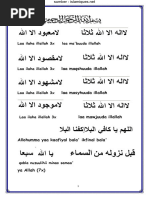 sumber : islamiques.net
بسم الله الرحمن الرحيم
لااله الا الله ثلاثا لامعبود الا الله
Laa ilaha illallah 3x laa ma'buuda illallah
لااله الا الله ثلاثا لامقصود الا الله
Laa ilaha illallah 3x laa maqshuuda illallah
لااله الا الله ثلاثا لامشهود الا الله
Laa ilaha illallah 3x laa masyhuuda illallah
لااله الا الله ثلاثا لاموجود الا الله
Laa ilaha illallah 3x laa mawjuuda illallah
اللهم يا كافي البلاء اكفنا البلا
Allahumma yaa kaafiyal bala' ikfinal bala'
قبل نزوله من السماء يا الله سبعا
qabla nuzuulihi minas samaa'
ya Allah (7x)
1